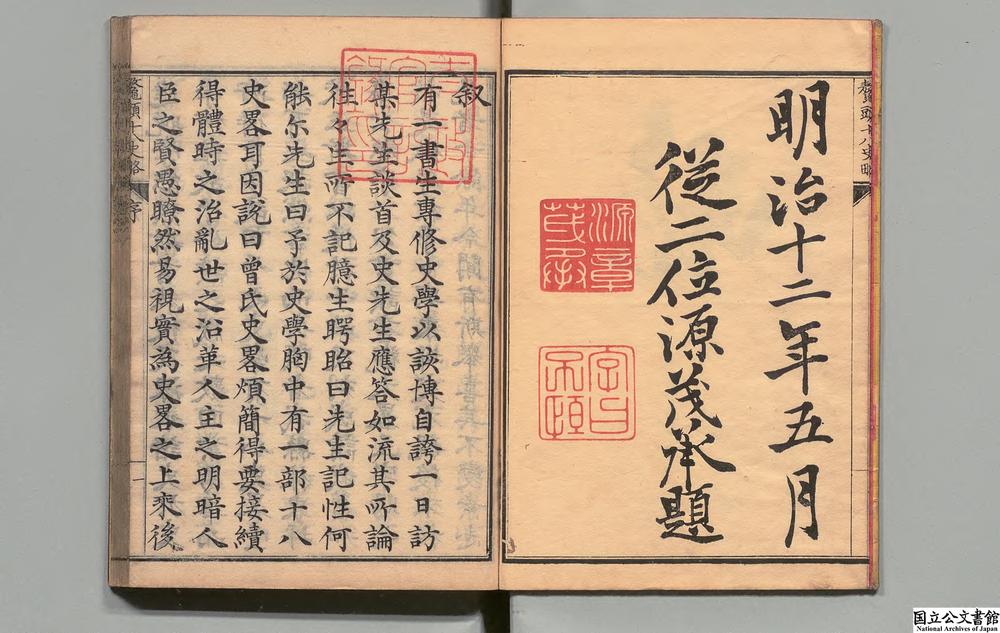 鼇頭十八史略
明治十二年五月
從二位源茂承題
叙
有一書生專修史學以該博自誇一日訪
某先生談首及史先生應答如流其所論
往々生所不記臆生愕眙曰先生記性何
能尓先生曰予於史學胸中有一部十八
史畧耳因說曰曾氏史畧煩簡得要接續
得體時之治亂世之沿革人主之明暗人
臣之賢愚瞭然易視實為史畧之上乘後
鼇頭十八史略 序 一
国立公文書館
National Archives of Japan